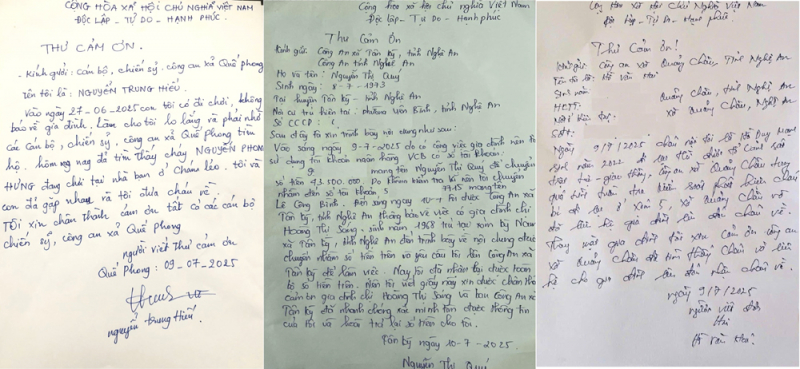 CỘNG HÒA XÃ HỘI CHỦ NGHĨA VIỆT NAM
ĐỘC LẬP - TỰ DO - HẠNH PHÚC.
THƯ CẢM ƠN.
- Kính gửi: cán bộ, chiến sỹ, công an xã Quế phong
Tên tôi là: NGUYỄN TRUNG HIẾU.
Vào ngày 27-06-2025 con tôi có đi chơi, không
báo về gia đình, làm cho tôi lo lắng và phải nhờ
các cán bộ, chiến sỹ, công an xã Quế Phong tìm
hộ. hôm nay đã tìm thấy cháy NGUYỄN PHONG
HƯNG đang chơi tại nhà bạn ở Châu leo. tôi và
con đã gặp nhau và tôi đưa cháu về.
Tôi xin chân thành cảm ơn tất cả các cán bộ
chiến sỹ, công an xã Quế Phong
người viết thư cảm ơn
Quế Phong: 09-07-2025
nguyễn Trung Hiếu.
Cộng hòa xã hội chủ nghĩa Việt Nam
Độc lập - Tự Do - Hạnh phúc
Thư Cảm Ơn
Kính gửi: Công An xã Tân Kỳ, tỉnh Nghệ An
Công An tỉnh Nghệ An
Họ và tên: Nguyễn Thị Quý
Sinh ngày: 8-7-1973
Tại huyện Tân Kỳ - tỉnh Nghệ An
Nơi cư trú hiện tại: phường Vinh, tỉnh Nghệ An
Số CCCD:
Sau đây tôi xin trình bày nội dung như sau:
Vào sáng ngày 9-7-2025 do có công việc gia đình nên
sử dụng tài khoản ngân hàng VCB có số tài khoản:
9 mang tên Nguyễn Thị Quý để chuyển
số tiền 43.500.000 Do không kiểm tra kĩ nên tôi chuyển
nhầm đến số tài khoản 5 7715 mang tên
Lê Công Bình. Đến sáng ngày 10-7 tôi được Công An xã
Tân Kỳ, tỉnh Nghệ An thông báo về việc có gia đình chị
Hoàng Thị Song, sinh năm 1968 trú tại xóm
xã Tân Kỳ, tỉnh Nghệ An đến trình bày về nội dung được
chuyển nhầm số tiền trên và yêu cầu tôi lên Công An xã
Tân Kỳ để làm việc. Nay tôi đã nhận lại được toàn
bộ số tiền trên. Nên tôi viết giấy này xin được chân thành
cảm ơn gia đình chị Hoàng Thị Song và ban Công An xã
Tân Kỳ đã nhanh chóng xác minh tìm được thông tin
của tôi và hoàn trả lại số tiền cho tôi.
Tân Kỳ ngày 10-7-2025.
Nguyễn Thị Quý
Cộng Hòa Xã Hội Chủ Nghĩa Việt Nam
Độc lập - Tự Do - Hạnh phúc
Thư Cảm Ơn!
Kính gửi: Công an xã Quỳnh Châu, Tỉnh Nghệ An
Tên tôi là: Hồ Văn Hai
Sinh năm:
HKTT: Quỳnh Châu, tỉnh Nghệ An
xã Quỳnh Châu, Nghệ An
SĐT:
Ngày 9/7/2025 cháu nội tôi là Hồ Duy Mạnh
sinh năm 2022 đi lạc
công an xã Quỳnh Châu
bị đi lạc ở xóm 5, xã Quỳnh Châu
Thay mặt gia đình tôi xin cảm ơn công an
xã Quỳnh Châu đã tìm thấy cháu và liên
hệ cho gia đình tôi đến nhận cháu về.
ngày 9/7/2025
người viết đơn
Hai
Hồ Văn Hai